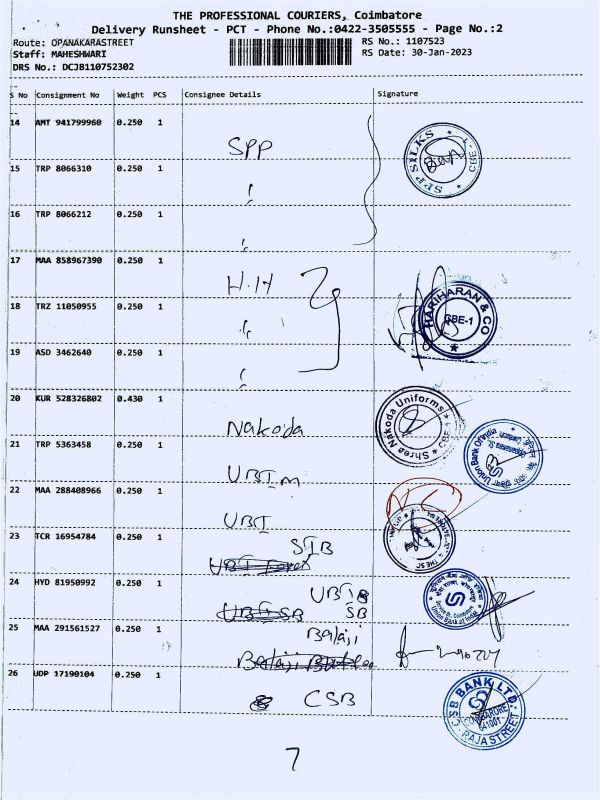 THE PROFESSIONAL COURIERS, Coimbatore
Delivery Runsheet - PCT - Phone No.:0422-3505555 - Page No.:2
Route: OPANAKARASTREET
RS No.: 1107523
Staff: MAHESHWARI
RS Date: 30-Jan-2023
DRS No.: DCJB110752302
S No Consignment No Weight PCS Consignee Details Signature
14 AMT 941799960 0.250 1
SPP
SPP SILKS CBE-1
15 TRP 8066310 0.250 1
16 TRP 8066212 0.250 1
17 MAA 858967390 0.250 1
H.H
18 TRZ 11050955 0.250 1
HARIHARAN & CO CBE-1
19 ASD 3462640 0.250 1
20 KUR 528326802 0.430 1
Nakoda
Shree Nakoda Uniforms CBE-1
21 TRP 5363458 0.250 1
UBI m
Union Bank Of India
22 MAA 288408966 0.250 1
UBI
23 TCR 16954784 0.250 1
SIB
24 HYD 81950992 0.250 1
UBI
SB
Union Bank of India
25 MAA 291561527 0.250 1
Balaji
26 UDP 17190104 0.250 1
CSB
CSB BANK LTD.
COIMBATORE
641001
RAJA STREET
7